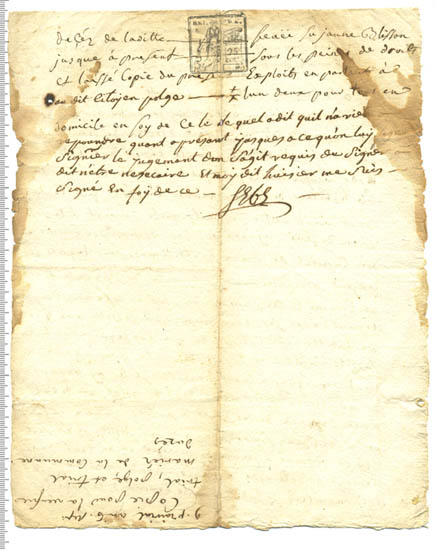 de çéz de laditte
jusque à present sous les peines de droits
et laissé Copie du pres Exploits en parlant à
au dit Citoyen polge lun deux pour tous en
domicile en foy de Ce le quel a dit quil na rien
reponndre quant a present jusques a ce quon luy
Signier le jugement don Sagit requis de Signer
dit nétre nesecaire Et moy dit huisier me suis
Signé En foy de ce
9 prairial an 6
Copie pour la veufve
trial, polge et trial
mariés de la Commune